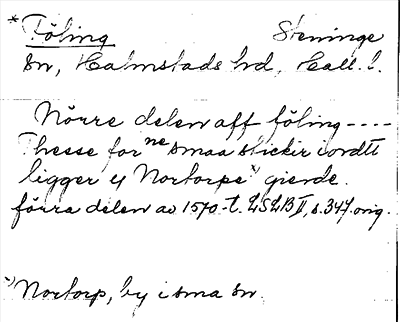 * Föling Steninge
sn, Halmstads hd, Hall. l.
Nörre delen aff föling ----
Theese for ne smaa stickir iordtt
ligger y Nortorpe *) gierde.
förra delen av 1570-t. LSLB II, s. 347. orig.
*) Nortorp, by i sma sn.